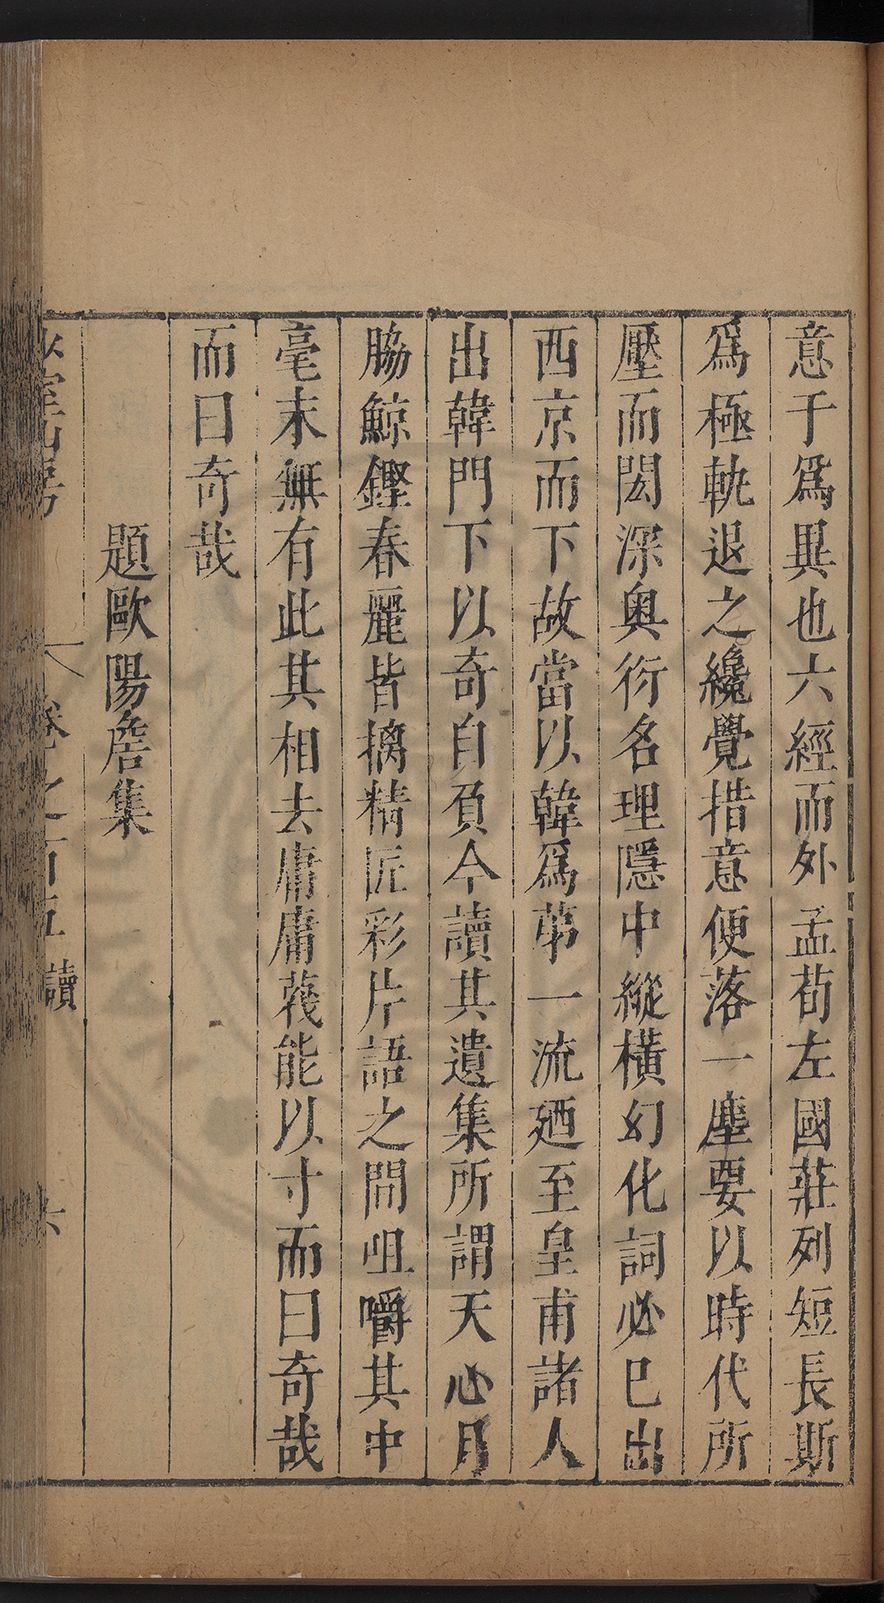 意于爲異也六經而外孟荀左國莊列短長斯
爲極軌退之纔覺措意便落一塵要以時代所
壓而閎深奥衍名理隱中縱橫幻化詞必巳出
西京而下故當以韓爲第一流廼至皇甫諸人
出韓門下以奇自負今讀其遺集所謂天心月
脇鯨鏗春麗皆摛精匠彩片語之間咀嚼其中
毫末無有此其相去庸庸蔑能以寸而曰奇哉
而曰奇哉
題歐陽詹集
室山房
卷之一百五 讀 六